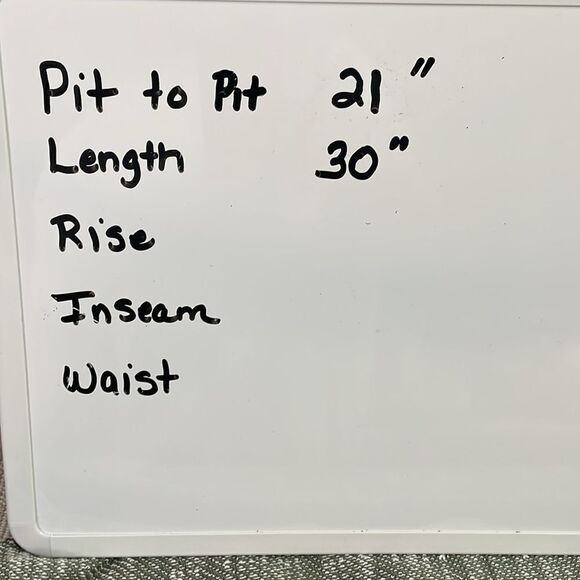 Pit to Pit 21"
Length 30"
Rise
Inseam
Waist